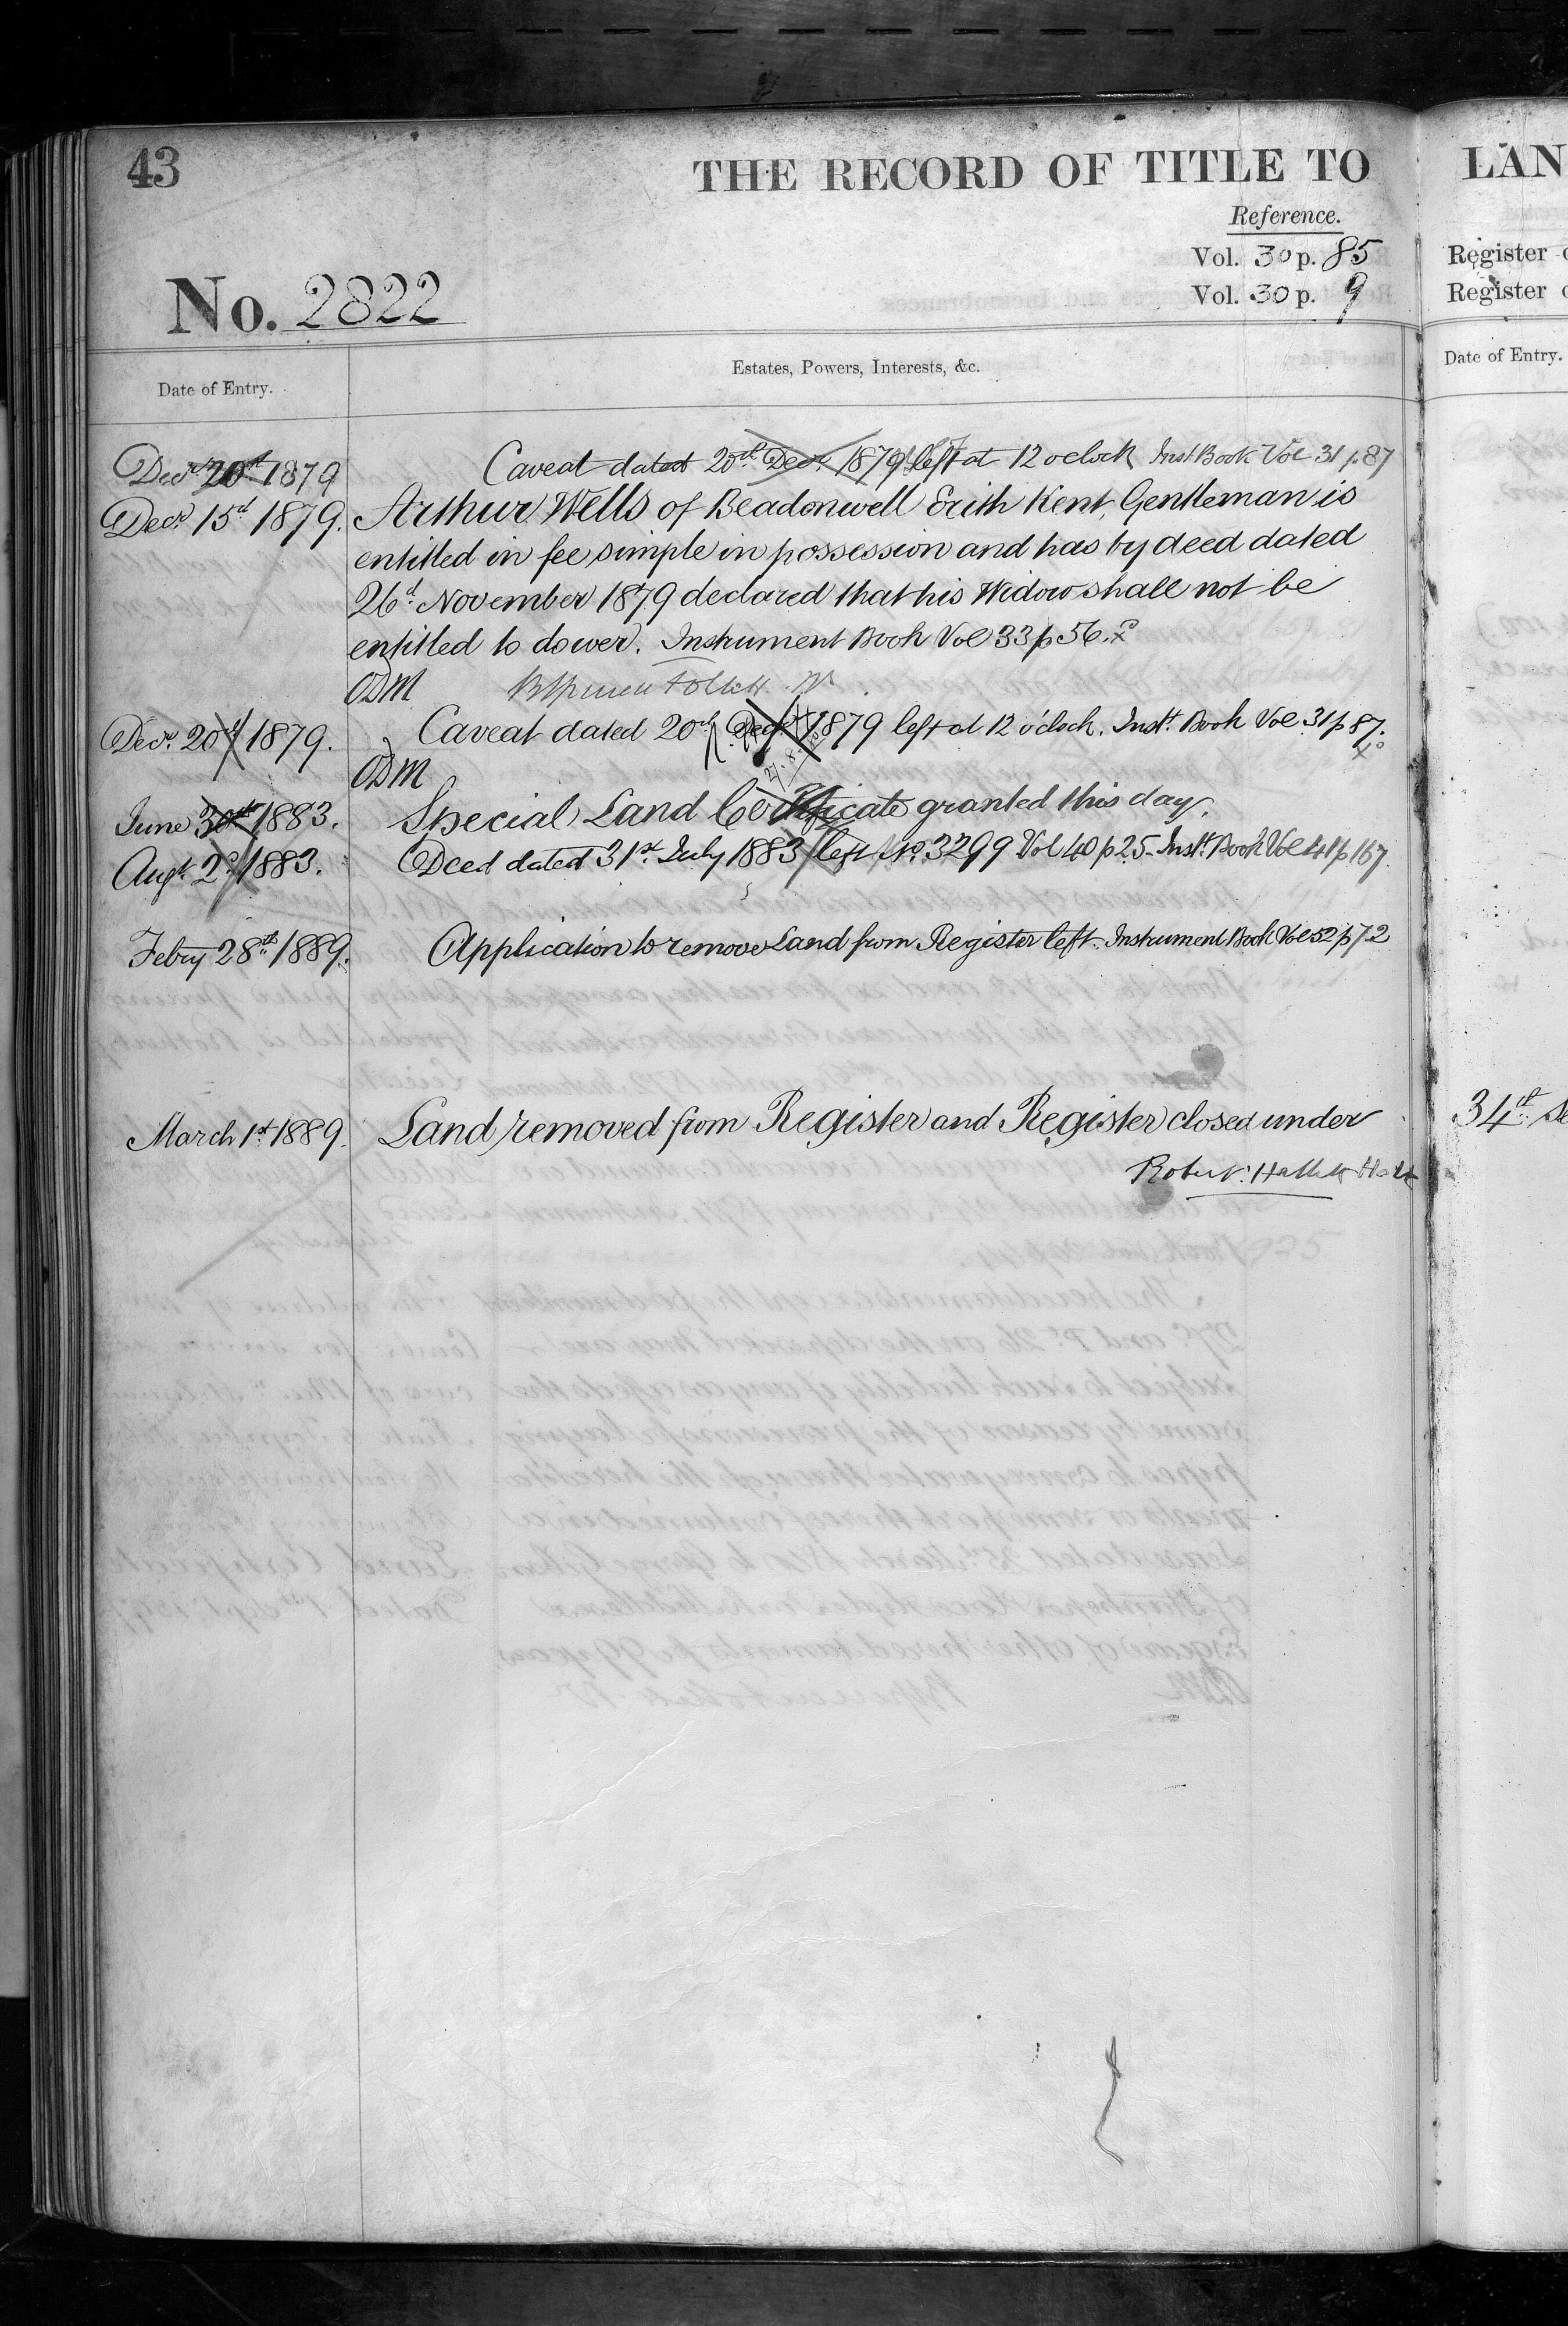 43
THE RECORD OF TITLE TO
Reference.
Vol. 30 p. 85
Vol. 30 p. 9
No. 2822
Date of Entry.
Estates, Powers, Interests, &c.
Decr 20th 1879 Caveat dated 20th Decr 1879 left at 12 oclock Inst Book Vol 31 p. 87
Decr 15th 1879. Arthur Wells of Beadonwell Erith Kent, Gentleman is
entitled in fee simple in possession and has by deed dated
26th November 1879 declared that his Widow shall not be
entitled to dower. Instrument Book Vol 33 p 56.
ODM
Decr 20th 1879. Caveat dated 20th Decr 1879 left at 12 o'clock. Instt Book Vol 31 p 87.
ODM
27.8.
June 30th 1883. Special Land Certificate granted this day.
Augt 2d 1883. Deed dated 31st July 1883 left No 3299 Vol 40 p 25. Instt Book Vol 41 p 167
Febry 28th 1889. Application to remove Land from Register left. Instrument Book Vol 52 p 72
March 1st 1889. Land removed from Register and Register closed under
Robert Hallett Holt
LAN
Register
Register
Date of Entry.
34th